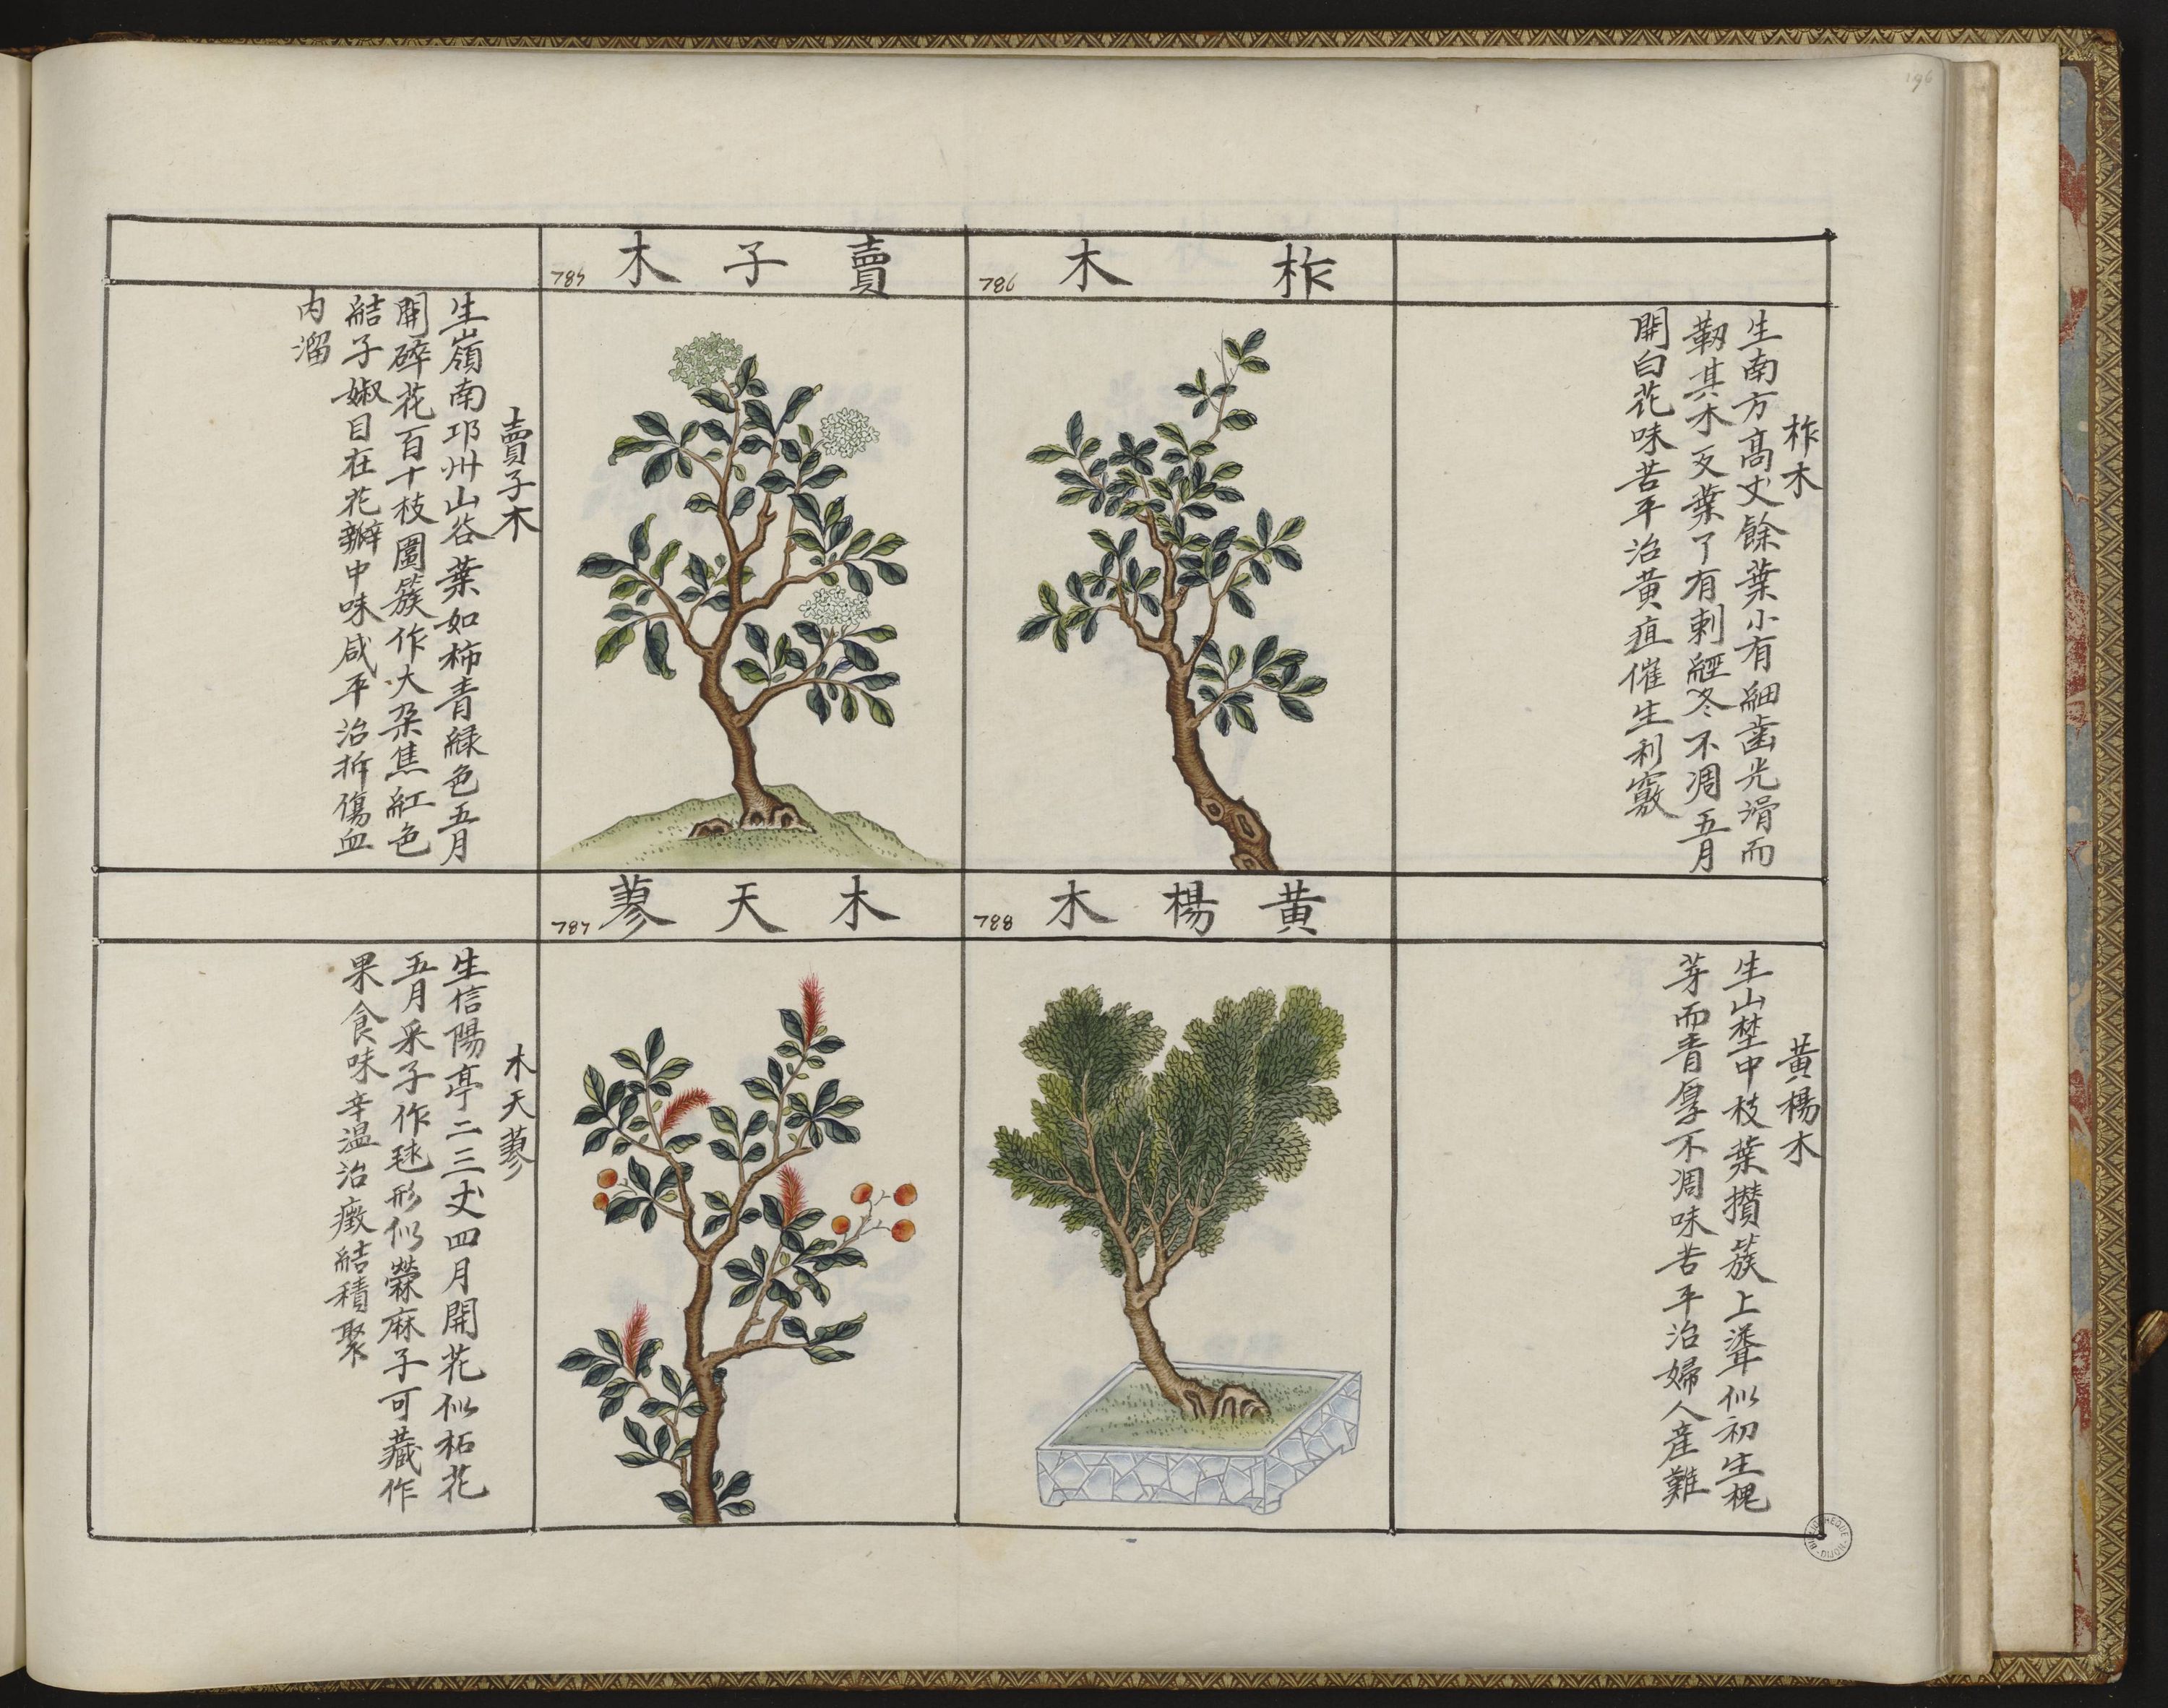 196
柞木
786
柞木
生南方高丈餘葉小有細齒光滑而
韌其木及葉了有刺經冬不凋五月
開白花味苦平治黃疸催生利竅
賣子木
785
賣子木
生嶺南邛州山谷葉如柿青綠色五月
開碎花百十枝圍簇作大朶焦紅色
結子如椒目在花瓣中味咸平治折傷血
内溜
黃楊木
788
黃楊木
生山埜中枝葉攢簇上聳似初生槐
芽而青厚不凋味苦平治婦人產難
木天蓼
787
木天蓼
生信陽亭二三丈四月開花似柘花
五月采子作毬形似檾麻子可藏作
果食味辛温治癥結積聚